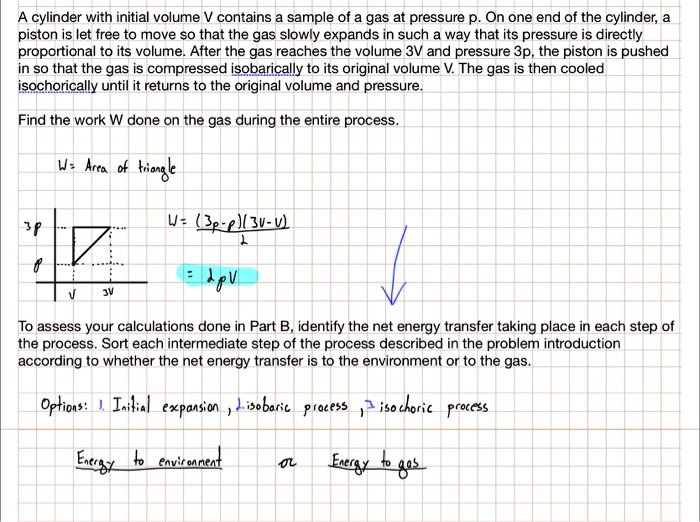 A cylinder with initial volume V contains a sample of a gas at pressure p. On one end of the cylinder, a
piston is let free to move so that the gas slowly expands in such a way that its pressure is directly
proportional to its volume. After the gas reaches the volume 3V and pressure 3p, the piston is pushed
in so that the gas is compressed isobarically to its original volume V. The gas is then cooled
isochorically until it returns to the original volume and pressure.
Find the work W done on the gas during the entire process.
W= Area of triangle
3p
p
V 3V
W= (3p-p)(3V-V)
2
= 2pV
To assess your calculations done in Part B, identify the net energy transfer taking place in each step of
the process. Sort each intermediate step of the process described in the problem introduction
according to whether the net energy transfer is to the environment or to the gas.
Options: 1. Initial expansion, 2. isobaric process, 3 isochoric process
Energy to environment or Energy to gas